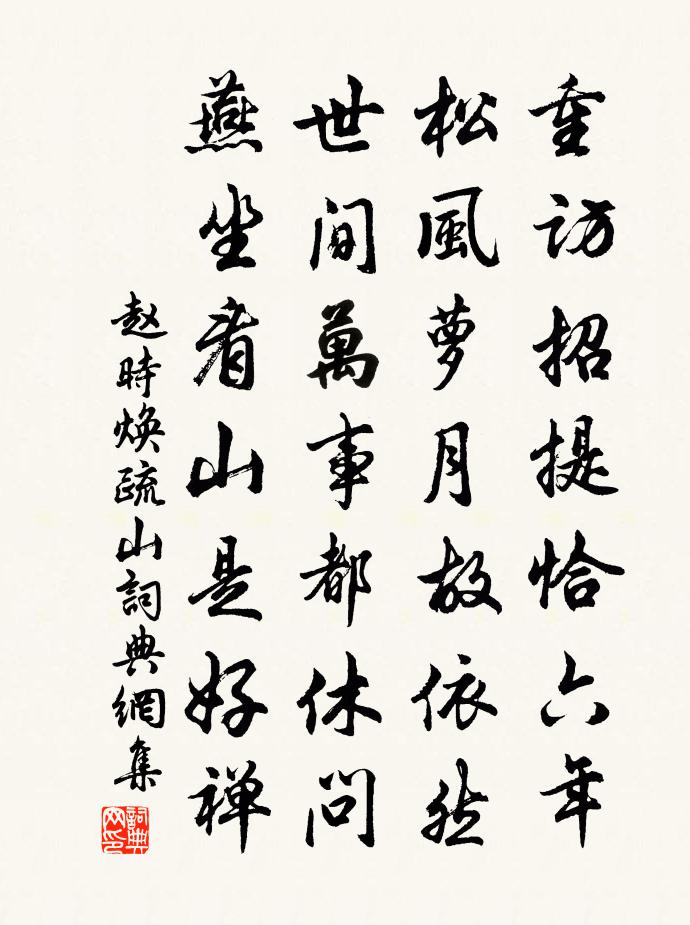 重访招提恰六年
松風萝月故依然
世间萬事都休问
燕坐看山是好禅
赵時焕疏山詞典網集
詞典
网印